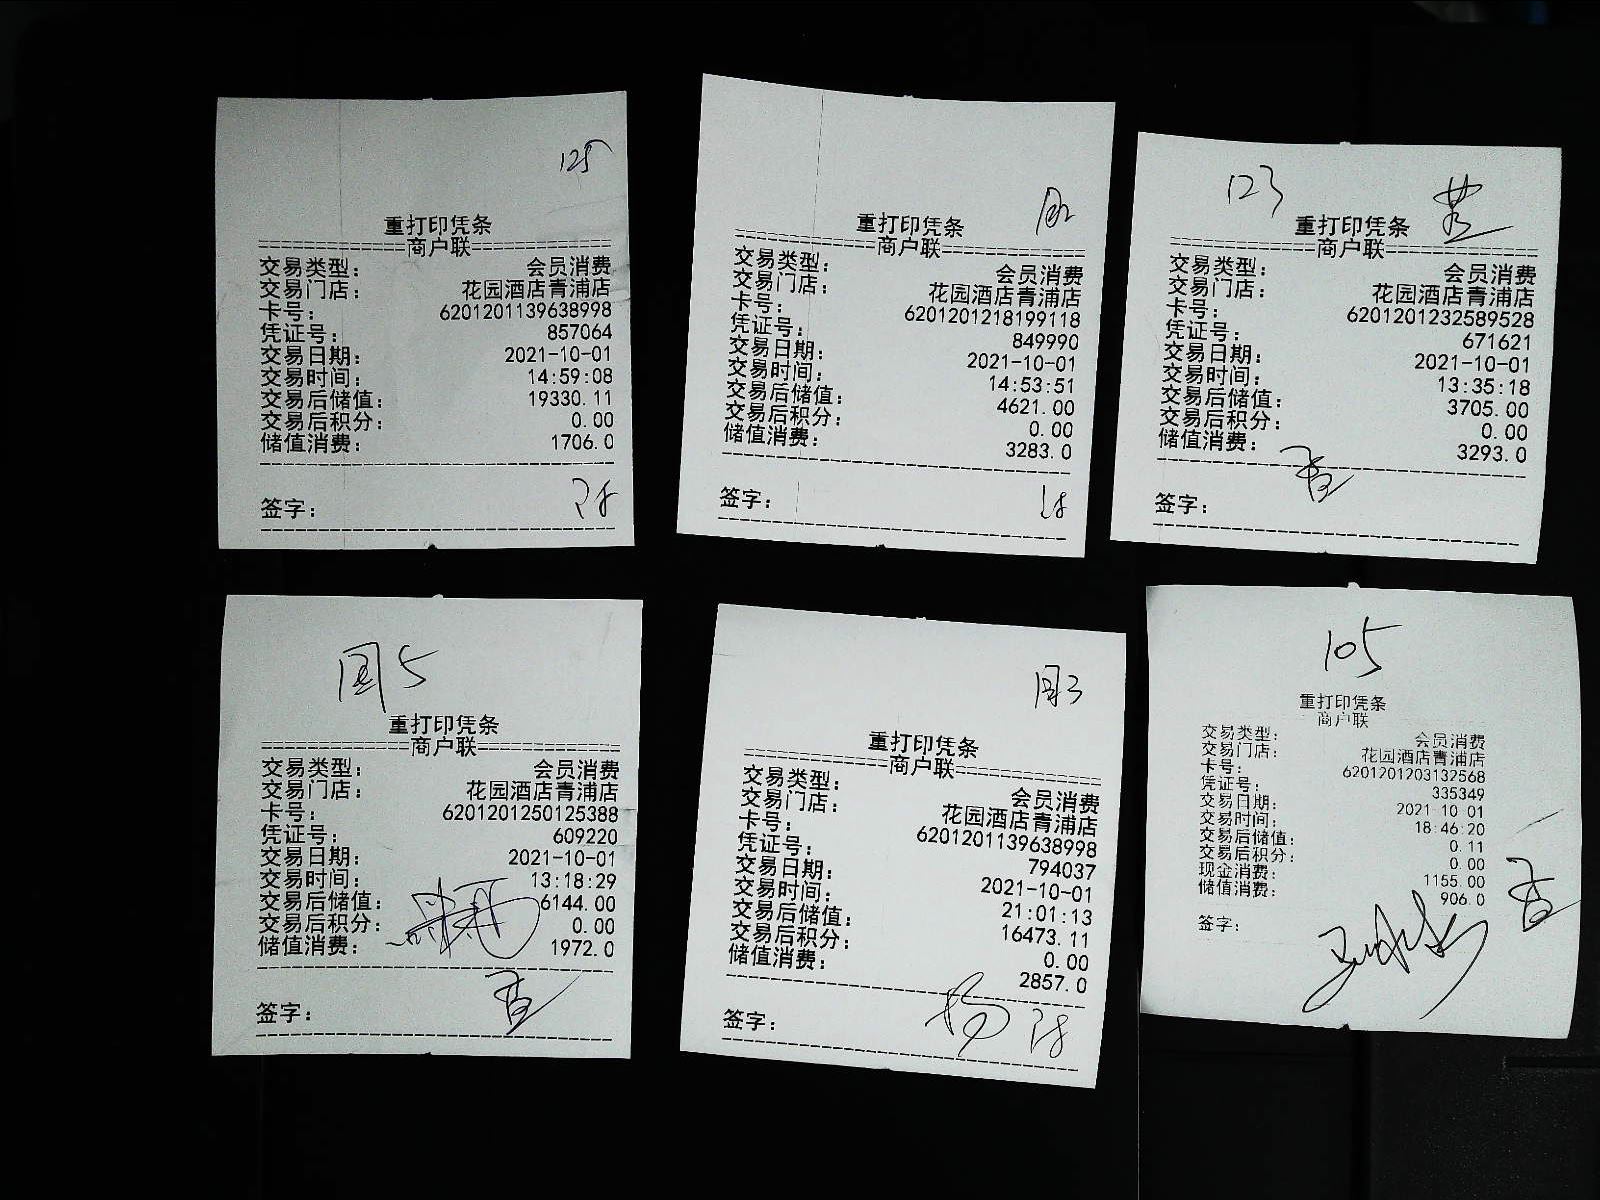 125
重打印凭条
==============商户联==============
交易类型： 会员消费
交易门店： 花园酒店青浦店
卡号： 6201201139638998
凭证号： 857064
交易日期： 2021-10-01
交易时间： 14:59:08
交易后储值： 19330.11
交易后积分： 0.00
储值消费： 1706.0
签字：
重打印凭条
==============商户联==============
交易类型： 会员消费
交易门店： 花园酒店青浦店
卡号： 6201201218199118
凭证号： 849990
交易日期： 2021-10-01
交易时间： 14:53:51
交易后储值： 4621.00
交易后积分： 0.00
储值消费： 3283.0
签字：
123
重打印凭条
==============商户联==============
交易类型： 会员消费
交易门店： 花园酒店青浦店
卡号： 6201201232589528
凭证号： 671621
交易日期： 2021-10-01
交易时间： 13:35:18
交易后储值： 3705.00
交易后积分： 0.00
储值消费： 3293.0
签字：
国5
重打印凭条
==============商户联==============
交易类型： 会员消费
交易门店： 花园酒店青浦店
卡号： 6201201250125388
凭证号： 609220
交易日期： 2021-10-01
交易时间： 13:18:29
交易后储值： 6144.00
交易后积分： 0.00
储值消费： 1972.0
签字：
国3
重打印凭条
==============商户联==============
交易类型： 会员消费
交易门店： 花园酒店青浦店
卡号： 6201201139638998
凭证号： 794037
交易日期： 2021-10-01
交易时间： 21:01:13
交易后储值： 16473.11
交易后积分： 0.00
储值消费： 2857.0
签字：
105
重打印凭条
商户联
交易类型： 会员消费
交易门店： 花园酒店青浦店
卡号： 6201201203132568
凭证号： 335349
交易日期： 2021-10-01
交易时间： 18:46:20
交易后储值： 0.11
交易后积分： 0.00
现金消费： 1155.00
储值消费： 906.0
签字：